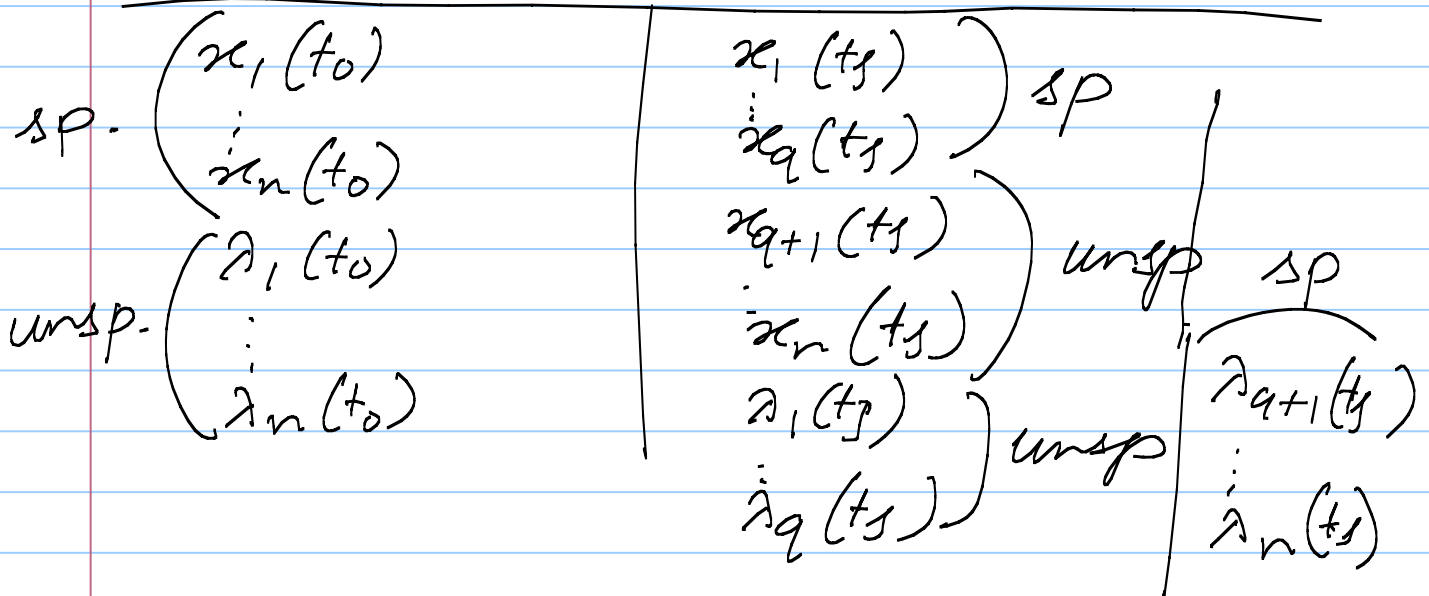 x₁(t₀)
⋮
xₙ(t₀)
sp.
λ₁(t₀)
⋮
λₙ(t₀)
unsp.
x₁(t_f)
⋮
x_q(t_f)
sp
x_{q+1}(t_f)
⋮
xₙ(t_f)
unsp
λ₁(t_f)
⋮
λ_q(t_f)
unsp
sp
λ_{q+1}(t_f)
⋮
λₙ(t_f)